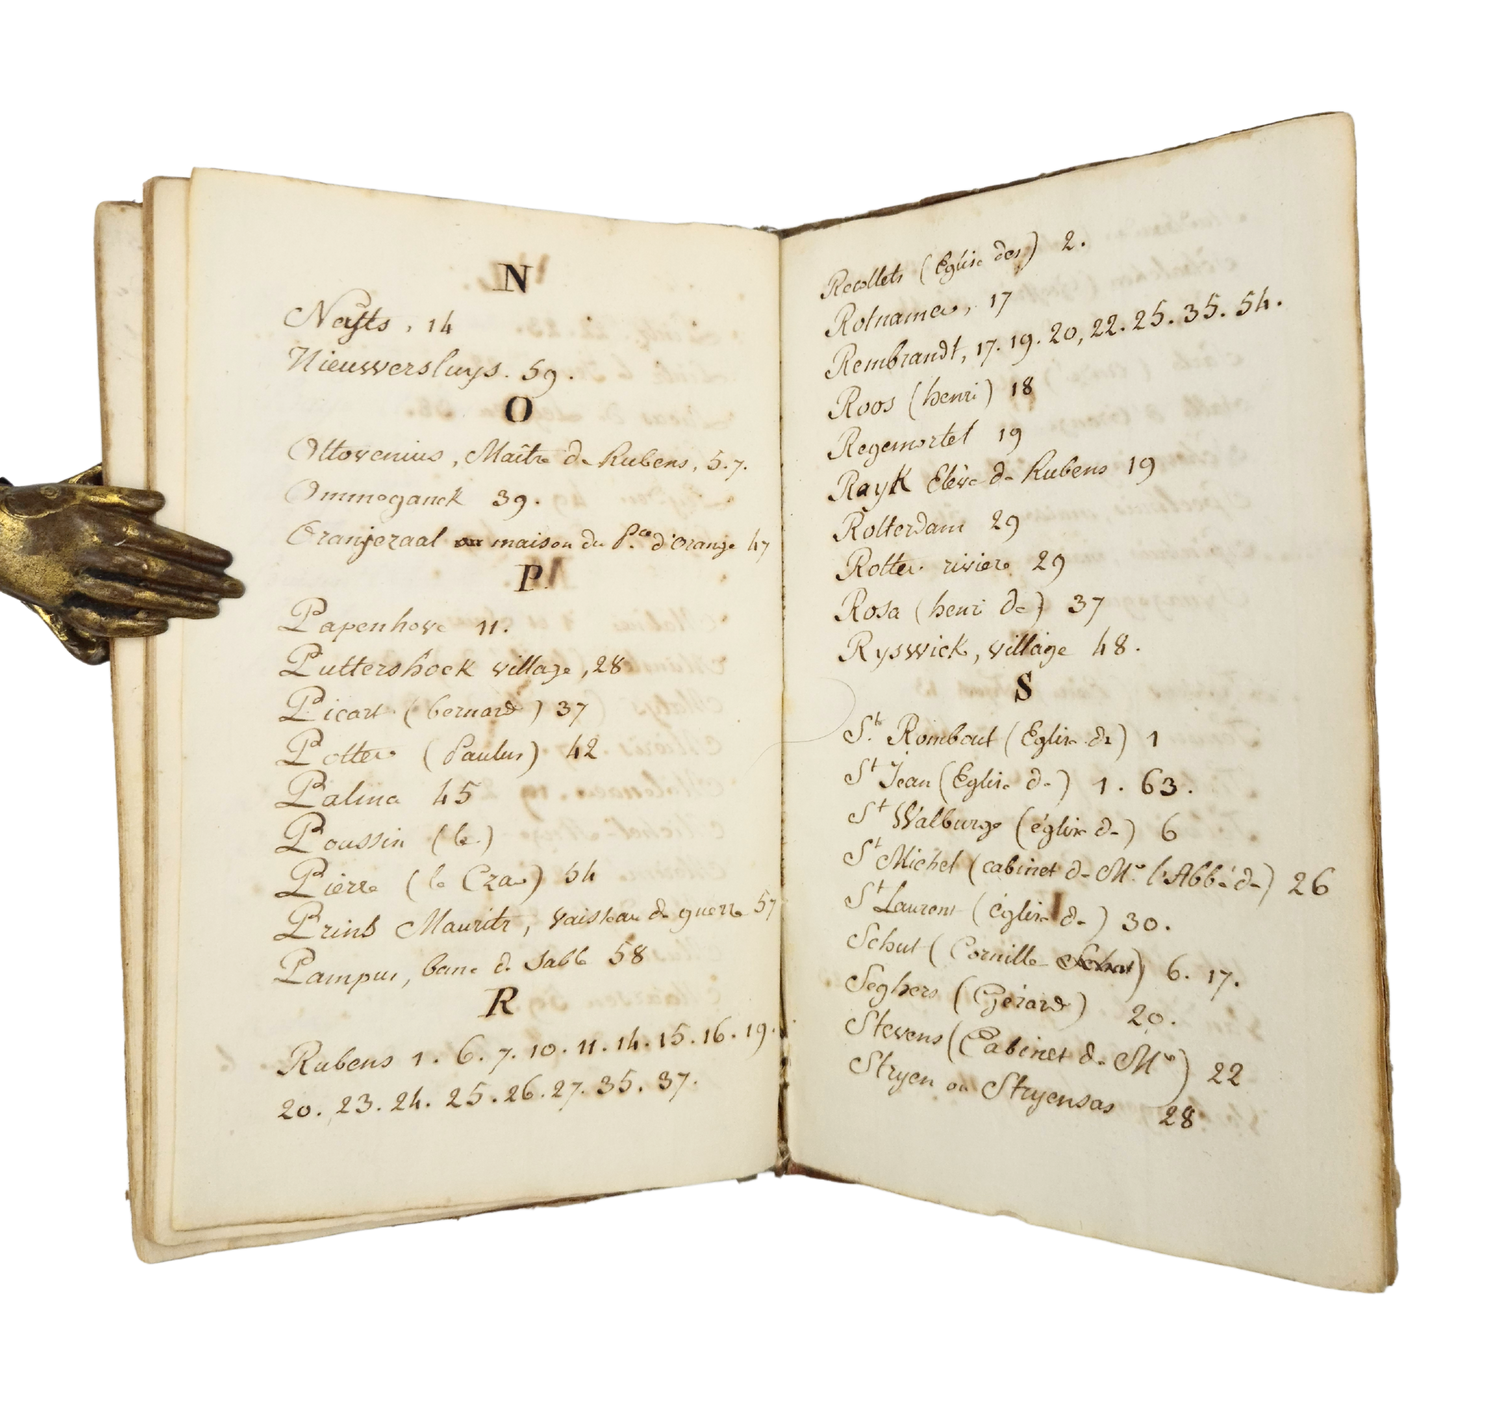 N
Neyts, 14
Nieuwersluys. 59.
O
Ottovenius, Maître de Rubens, 5.7.
Ommeganck 39.
Oranjezaal ou maison du P.ce d'Orange 47
P
Papenhove 11.
Puttershoek village, 28
Picart (bernard) 37
Potter (Paulus) 42
Palma 45
Poussin (le)
Pierre (le Czar) 54
Prins Maurits, vaisseau de guerre 57
Pampus, banc de Sable 58
R
Rubens 1. 6. 7. 10. 11. 14. 15. 16. 19.
20. 23. 24. 25. 26. 27. 35. 37.
Recollets (Eglise des) 2.
17
Rembrandt, 17. 19. 20, 22. 25. 35. 54.
Roos (henri) 18
Regemortel 19
RayK Elève de Rubens 19
Rotterdam 29
Rotter riviere 29
Rosa (henri de) 37
Ryswick, village 48.
S
S.t Rombout (Eglise de) 1
St Jean (Eglise de) 1. 63.
St Walburge (église de) 6
St Michel (cabinet de Mr l'Abbé de) 26
St Laurent (église de) 30.
Schut (Corneille Schut) 6. 17.
Seghers (Gérard) 20.
Stevens (Cabinet de Mr) 22
Stryen ou Stryensas 28